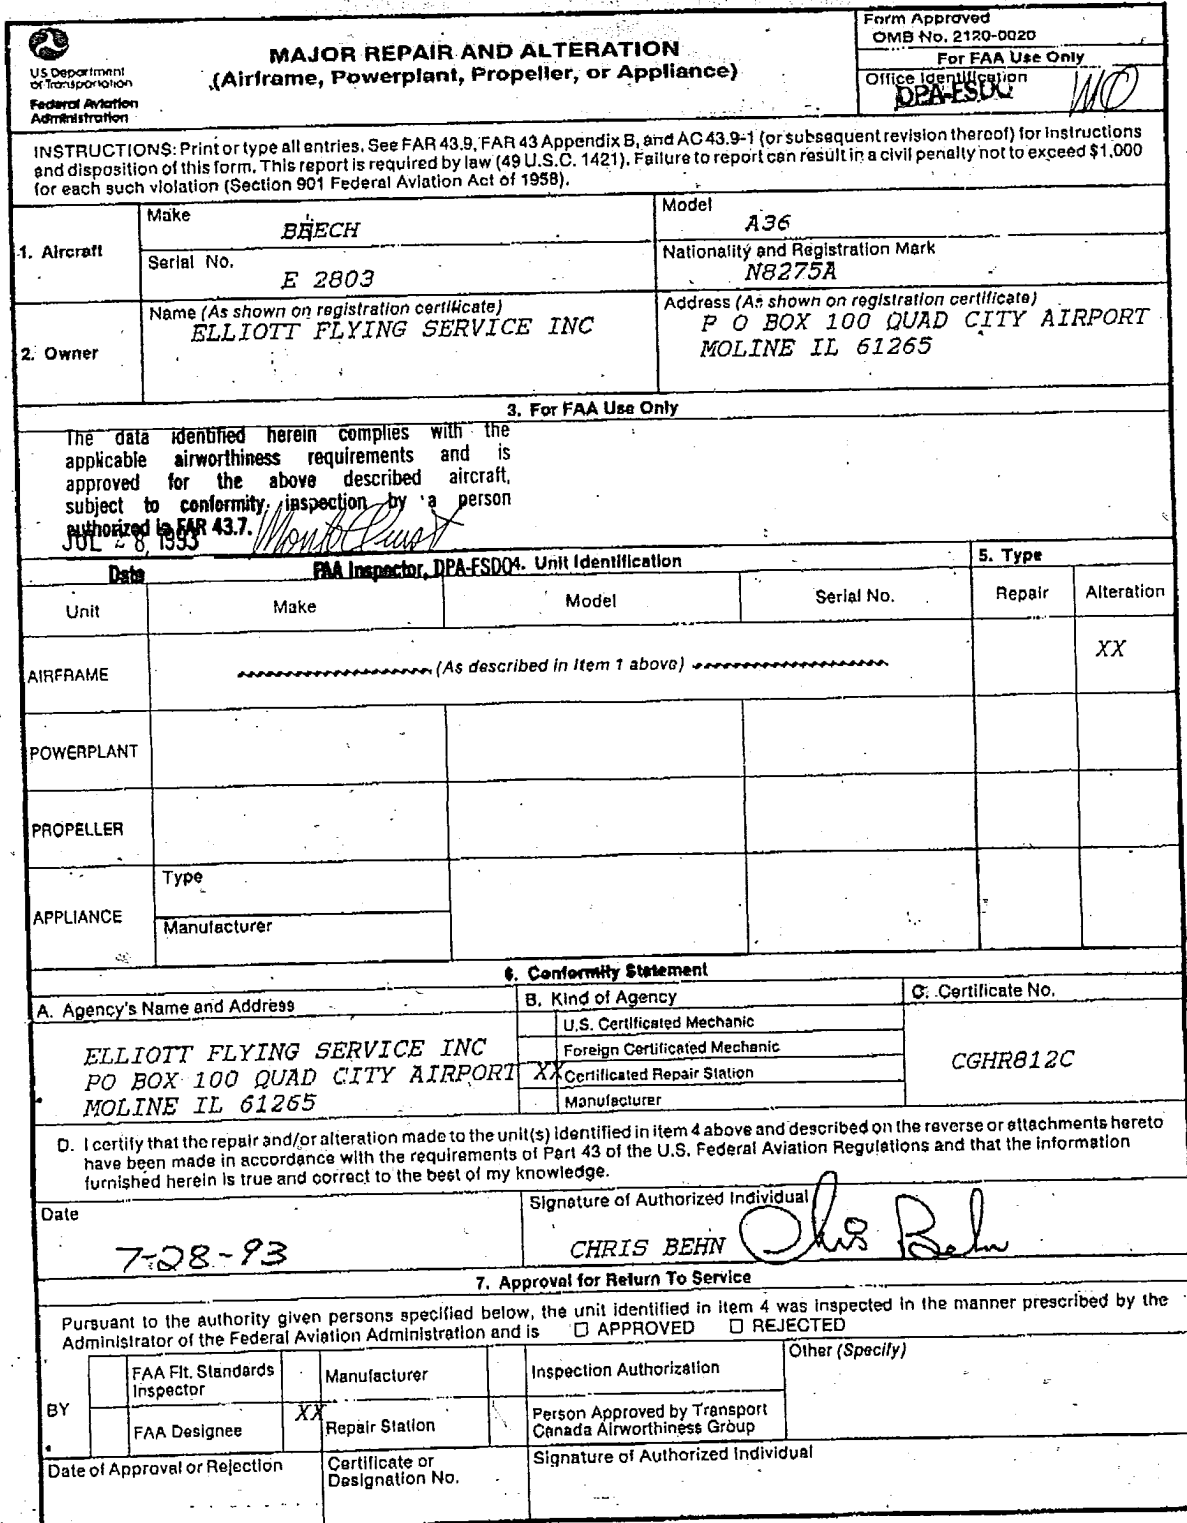 US Department
of Transportation
Federal Aviation
Administration
MAJOR REPAIR AND ALTERATION
(Airframe, Powerplant, Propeller, or Appliance)
Form Approved
OMB No. 2120-0020
For FAA Use Only
Office Identification
DPA-FSDO
INSTRUCTIONS: Print or type all entries. See FAR 43.9, FAR 43 Appendix B, and AC 43.9-1 (or subsequent revision thereof) for instructions
and disposition of this form. This report is required by law (49 U.S.C. 1421). Failure to report can result in a civil penalty not to exceed $1,000
for each such violation (Section 901 Federal Aviation Act of 1958).
1. Aircraft
Make
BEECH
Model
A36
Serial No.
E 2803
Nationality and Registration Mark
N8275A
2. Owner
Name (As shown on registration certificate)
ELLIOTT FLYING SERVICE INC
Address (As shown on registration certificate)
P O BOX 100 QUAD CITY AIRPORT
MOLINE IL 61265
3. For FAA Use Only
The data identified herein complies with the
applicable airworthiness requirements and is
approved for the above described aircraft,
subject to conformity inspection by a person
authorized in FAR 43.7.
JUL 28, 1993
Date
FAA Inspector, DPA-FSDO
4. Unit Identification
5. Type
Unit
Make
Model
Serial No.
Repair
Alteration
AIRFRAME
(As described in Item 1 above)
XX
POWERPLANT
PROPELLER
APPLIANCE
Type
Manufacturer
6. Conformity Statement
A. Agency's Name and Address
B. Kind of Agency
C. Certificate No.
ELLIOTT FLYING SERVICE INC
PO BOX 100 QUAD CITY AIRPORT
MOLINE IL 61265
U.S. Certificated Mechanic
Foreign Certificated Mechanic
XX Certificated Repair Station
Manufacturer
CGHR812C
D. I certify that the repair and/or alteration made to the unit(s) identified in item 4 above and described on the reverse or attachments hereto
have been made in accordance with the requirements of Part 43 of the U.S. Federal Aviation Regulations and that the information
furnished herein is true and correct to the best of my knowledge.
Date
7-28-93
Signature of Authorized Individual
CHRIS BEHN Chris Behn
7. Approval for Return To Service
Pursuant to the authority given persons specified below, the unit identified in item 4 was inspected in the manner prescribed by the
Administrator of the Federal Aviation Administration and is ☐ APPROVED ☐ REJECTED
BY
FAA Flt. Standards
Inspector
Manufacturer
Inspection Authorization
Other (Specify)
FAA Designee
XX
Repair Station
Person Approved by Transport
Canada Airworthiness Group
Date of Approval or Rejection
Certificate or
Designation No.
Signature of Authorized Individual